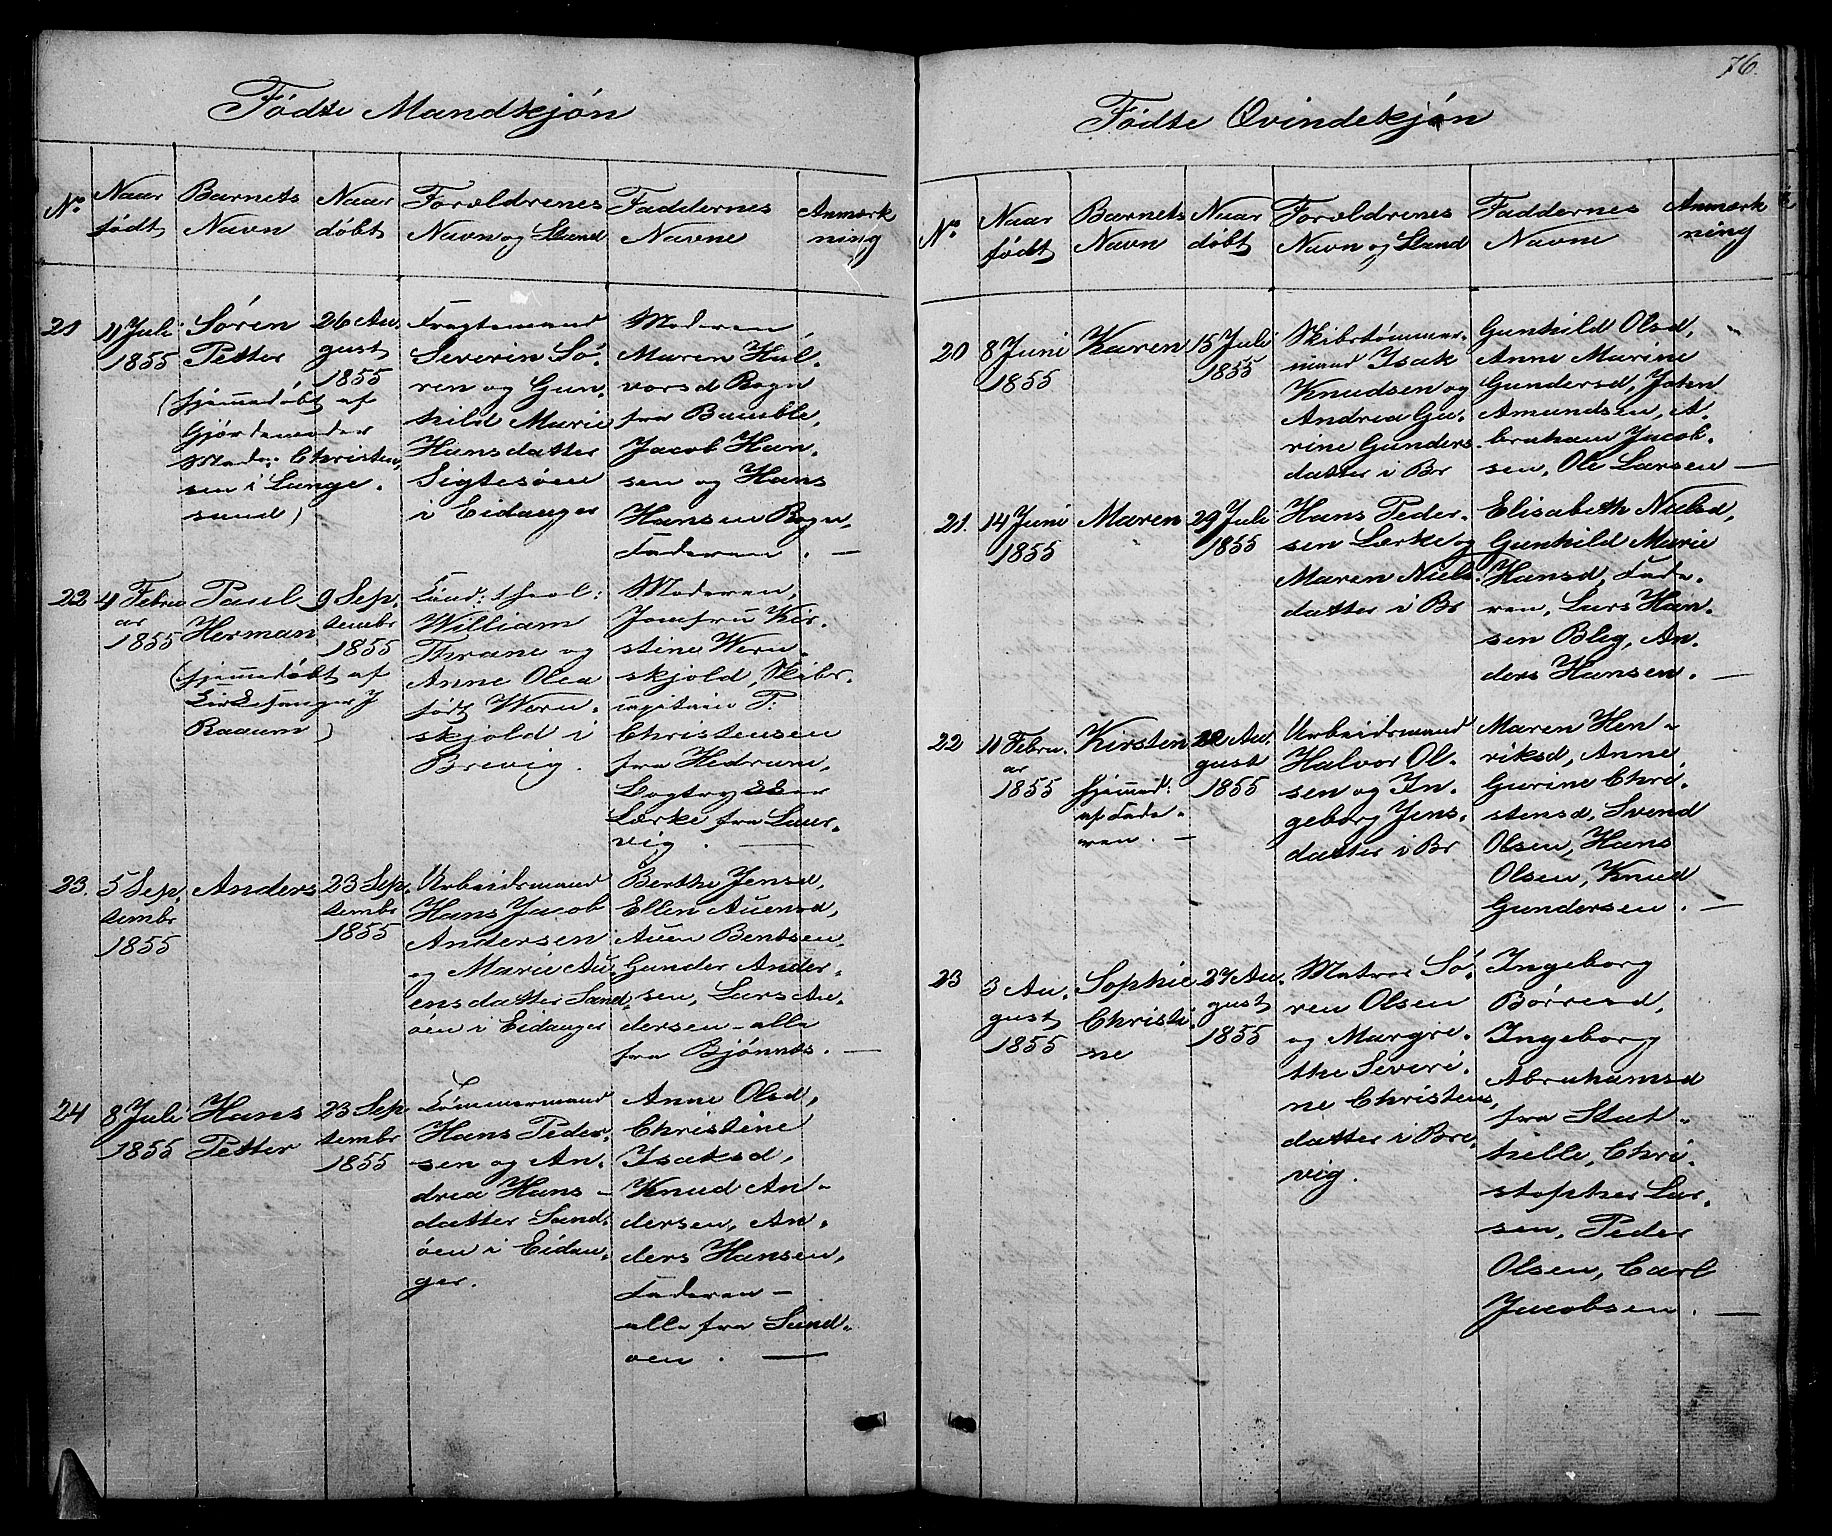 76.
Fødte Mandkjøn
No
Naar født
Barnets Navn
Naar døbt
Forældrenes Navn og Stand
Faddernes Navne
Anmærkning
21
11 Juli
1855
Søren
Petter
(hjemmedøbt af
Gjordemoder
Mad: Christen-
sen i Lange-
sund)
26 Au-
gust
1855
Fragtemand
Severin Sø-
ren og Gun-
hild Marie
Hansdatter
Sigtesøen
i Eidanger
Moderen,
Maren Hal-
vorsd Bogn
fra Bamble,
Jacob Han-
sen og Hans
Hansen Bogn,
Faderen. —
22
4 Febru
ar
1855
Paul
Herman
(hjemmedøbt af
Kirkesanger J
Raaum)
9 Sep-
tembr
1855
Cand: theol:
William
Thrane og
Anne Olea
født Wern-
skjold i
Brevig.
Moderen,
Jomfru Kir-
stine Wern-
skjold, Skibs-
capitain T:
Christensen
fra Hedrum,
Bogtrykker
Lærke fra Laur-
vig. —
23.
5 Sep-
tembr
1855
Anders
23 Sep-
tembr
1855
Arbeidsmand
Hans Jacob
Andersen
og Marie Au-
ensdatter Sand-
øen i Eidanger
Berthe Jensd,
Ellen Auensd,
Auen Bentsen,
Gunder Ander-
sen, Lars An-
dersen – alle
fra Bjønnes. —
24
8 Juli
1855
Hans
Petter
23 Sep
tembr
1855
Tømmermand
Hans Peder-
sen og An-
drea Hans-
datter Sand-
øen i Eidan-
ger.
Anne Olsd,
Christine
Isaksd,
Knud An-
dersen, An-
ders Hansen,
Faderen –
alle fra Sand-
øen. —
Fødte Qvindekjøn
No
Naar født
Barnets Navn
Naar døbt
Forældrenes Navn og Stand
Faddernes Navne
Anmærkning
20
8 Juni
1855
Karen
15 Juli
1855
Skibstømmer-
mand Isak
Knudsen og
Andrea Gu-
rine Gunders-
datter i Br
Gunhild Olsd,
Anne Marine
Gundersd, John
Amundsen, A-
braham Jacob-
sen, Ole Larsen —
21.
14 Juni
1855
Maren
29 Juli
1855
Hans Peder-
sen Lærke og
Maren Niels-
datter i Br
Elisabeth Nielsd,
Gunhild Marie
Hansd, Fade-
ren, Lars Han-
sen Bleg, An-
ders Hansen. —
22
11 Febru-
ar
1855
Kirsten
hjemmed:
af Fade-
ren. —
Au-
gust
1855
Arbeidsmand
Halvor Ol-
sen og In-
geborg Jens-
datter i Br
Maren Hen-
riksd, Anne
Gurine Chri-
stensd, Svend
Olsen, Hans
Olsen, Knud
Gundersen. —
23
3 Au-
gust
1855
Sophie
Christi-
ne
27 Au-
gust
1855
Matros Sø-
ren Olsen
og Margre-
the Severi-
ne Christens-
datter i Bre-
vig.
Ingeborg
Børresd,
Ingeborg
Abrahamsd
fra Stat-
helle, Chri-
stopher Lar-
sen, Peder
Olsen, Carl
Jacobsen. —